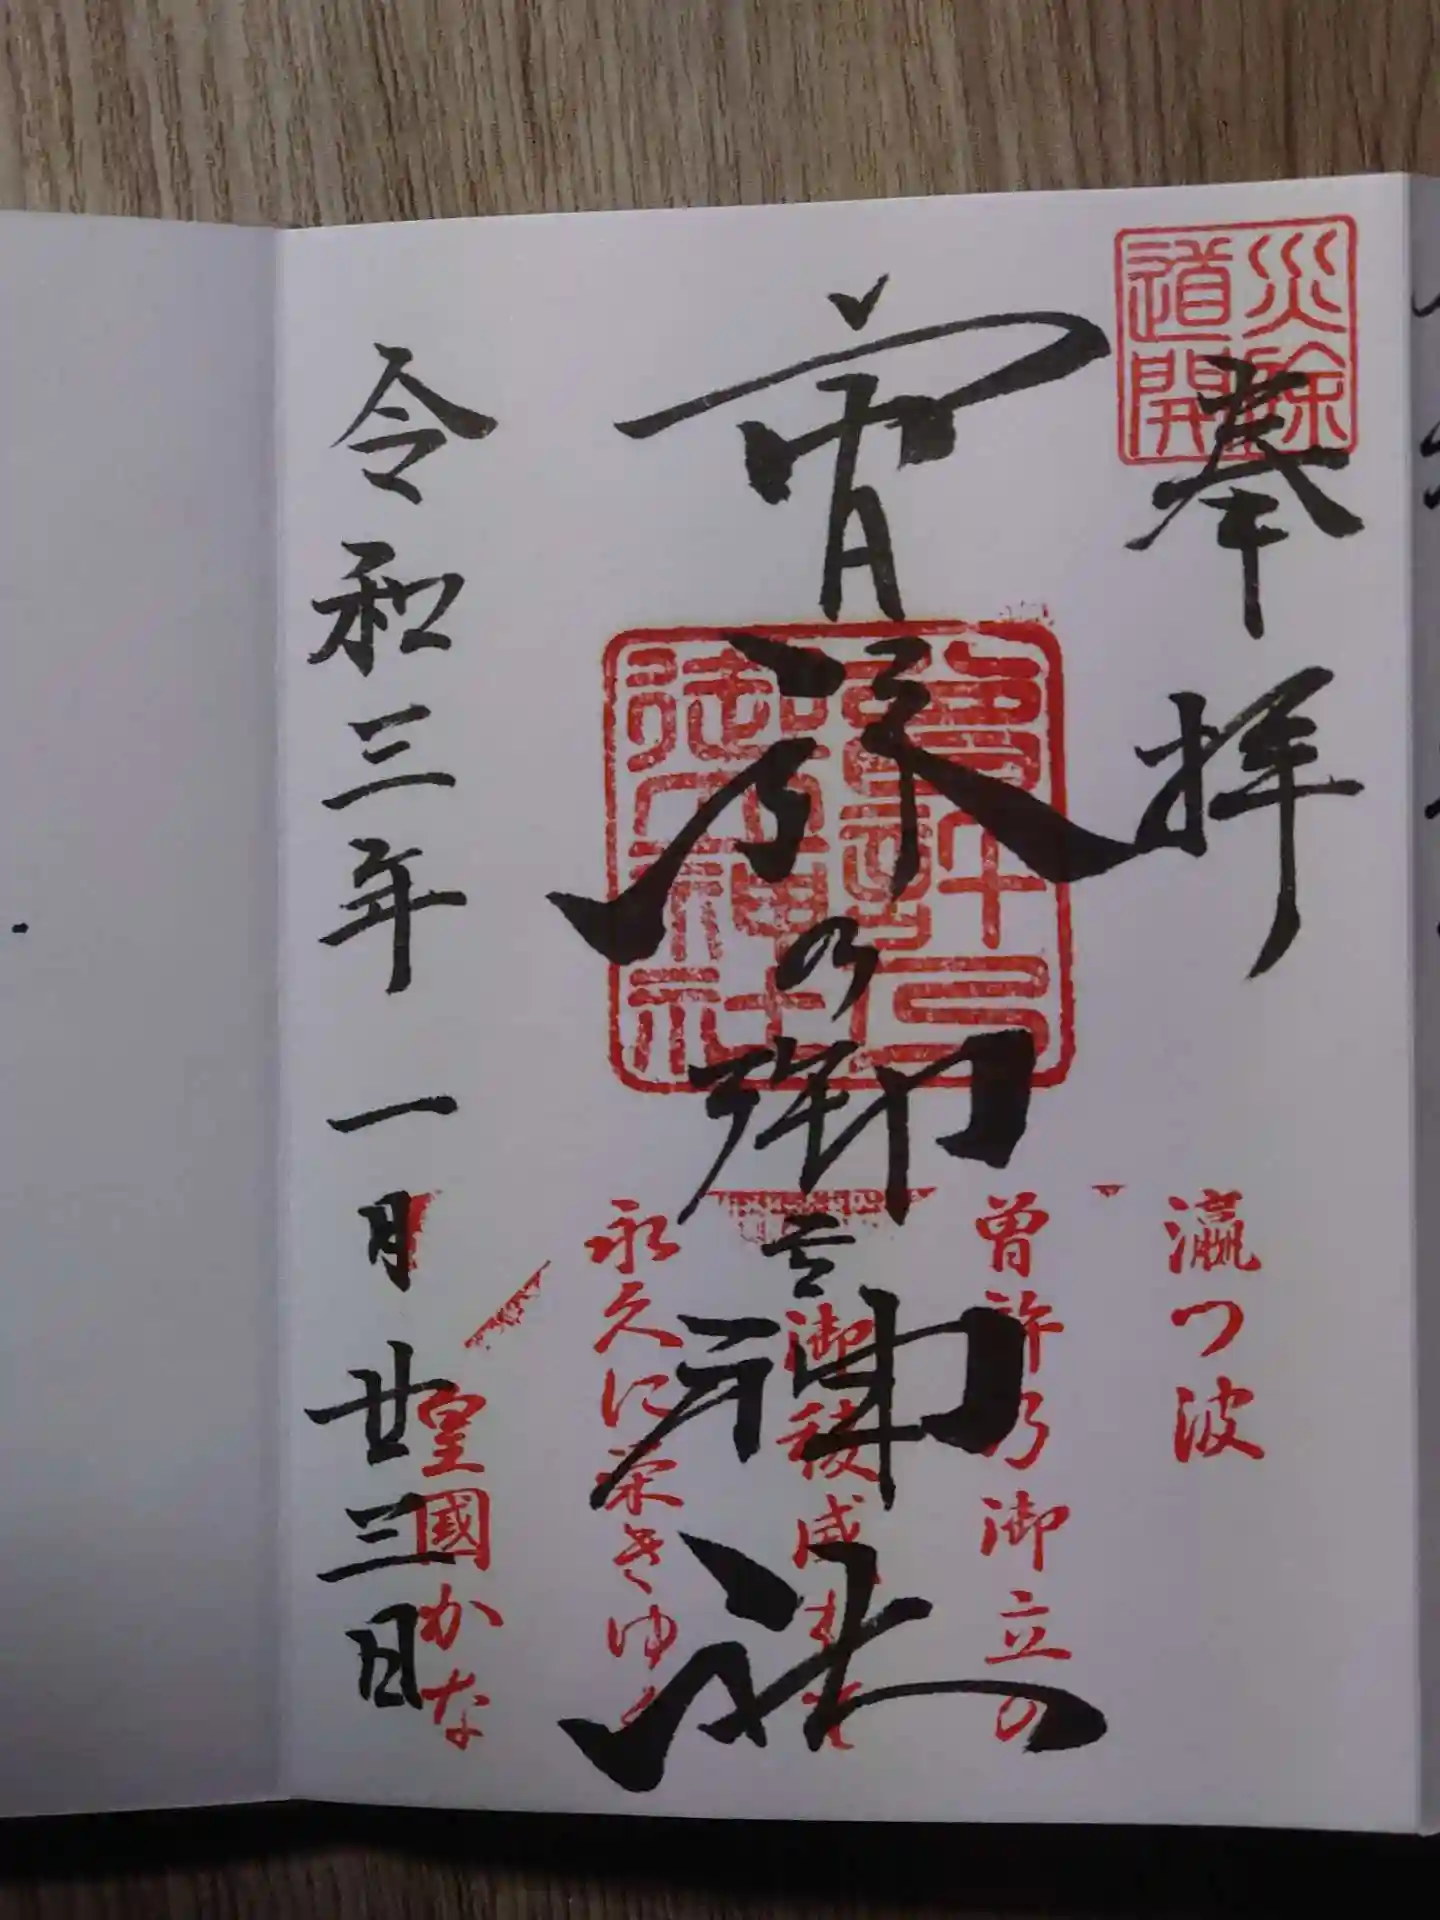 災除
道開
奉拝
曽許乃御立神社
曾許乃
御立神社
瀛つ波
曽許乃御立の
御稜威もて
永久に栄きゆく
皇國かな
令和三年一月廿三日